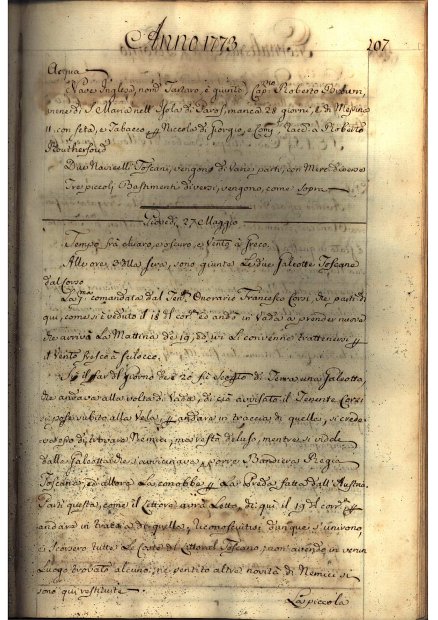 Anno 1773
207
Acqua
Nave Inglese, nom.ᵃ Tartaro, è giunto, Cap.ⁿᵒ Roberto
venendo di S. Maria nell'Isola di Paros, manca 28 giorni, e di Messina
11. con seta, e tabacco Niccola di Giorgio, e Comp. Racd. a Roberto
Routherfourd
Due Navicelli Toscani, vengono da varie parti, con Merci diverse
Tre piccoli Bastimenti diversi, vengono, come sopra
Giovedì 27 Maggio
Tempo frà chiaro, e oscuro, e Vento à Greco.
Alle ore 3 della sera, sono giunte le due Galeotte Toscane
dal corso
La p.ᵐᵃ comandata dal Ten.ᵉ Onorario Francesco Corsi, che partì di
qui, come si è veduto il 18 del cor.ᵉ ed andò in Vada à prender nuove
che arrivò la Mattina de 19, ed ivi le convenne trattenersi
il Vento fresco à Scilocco
Sù il far del Giorno de 20 fù scoperto di Terra una Galeotta,
che andava alla volta di Vada, di ciò avvisato il Tenente Corsi
si pose subito alla Vela, andare in traccia di quella, si crede-
va esso di trovare Nemici, ma restò deluso, mentre si vide
dalla Galeotta che s'avvicinava porre Bandiera Regia
Toscana, ed allora la conobbe La Preda fatta dall'Austria
Partì questa, come il Lettore avrà Letto, di qui il 19 del cor.ᵉ
andare in traccia di quella, riconosciutisi dunque s'unirono,
e scorsero tutte le Coste del Littoral Toscano, non avendo in verun
Luogo trovato alcuno, ne sentito altre novità di Nemici si
sono qui restituite
La piccola